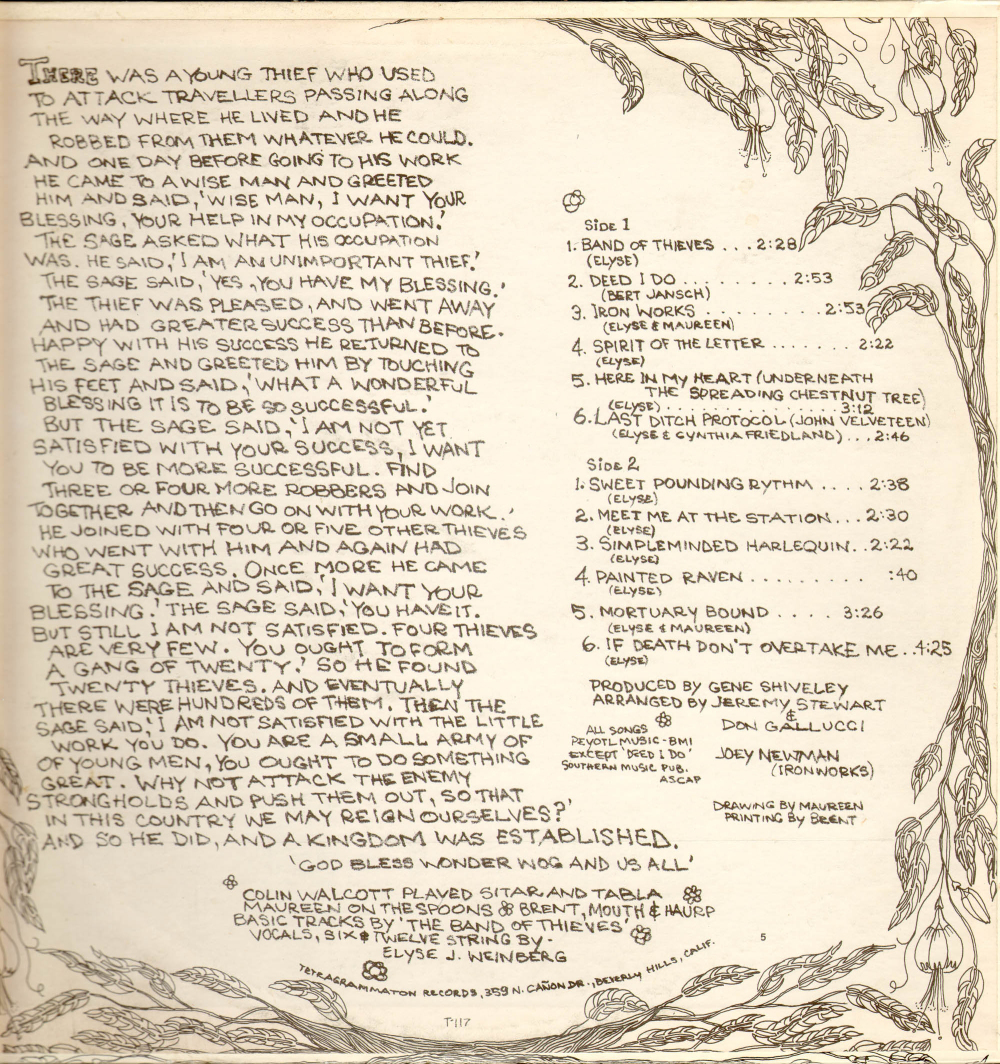 THERE WAS A YOUNG THIEF WHO USED
TO ATTACK TRAVELLERS PASSING ALONG
THE WAY WHERE HE LIVED AND HE
ROBBED FROM THEM WHATEVER HE COULD.
AND ONE DAY BEFORE GOING TO HIS WORK
HE CAME TO A WISE MAN AND GREETED
HIM AND SAID, 'WISE MAN, I WANT YOUR
BLESSING, YOUR HELP IN MY OCCUPATION.'
THE SAGE ASKED WHAT HIS OCCUPATION
WAS. HE SAID, 'I AM AN UNIMPORTANT THIEF.'
THE SAGE SAID, 'YES, YOU HAVE MY BLESSING.'
THE THIEF WAS PLEASED, AND WENT AWAY
AND HAD GREATER SUCCESS THAN BEFORE.
HAPPY WITH HIS SUCCESS HE RETURNED TO
THE SAGE AND GREETED HIM BY TOUCHING
HIS FEET AND SAID, 'WHAT A WONDERFUL
BLESSING IT IS TO BE SO SUCCESSFUL.'
BUT THE SAGE SAID, 'I AM NOT YET
SATISFIED WITH YOUR SUCCESS, I WANT
YOU TO BE MORE SUCCESSFUL. FIND
THREE OR FOUR MORE ROBBERS AND JOIN
TOGETHER AND THEN GO ON WITH YOUR WORK.'
HE JOINED WITH FOUR OR FIVE OTHER THIEVES
WHO WENT WITH HIM AND AGAIN HAD
GREAT SUCCESS. ONCE MORE HE CAME
TO THE SAGE AND SAID, 'I WANT YOUR
BLESSING.' THE SAGE SAID, 'YOU HAVE IT.
BUT STILL I AM NOT SATISFIED. FOUR THIEVES
ARE VERY FEW. YOU OUGHT TO FORM
A GANG OF TWENTY.' SO HE FOUND
TWENTY THIEVES. AND EVENTUALLY
THERE WERE HUNDREDS OF THEM. THEN THE
SAGE SAID, 'I AM NOT SATISFIED WITH THE LITTLE
WORK YOU DO. YOU ARE A SMALL ARMY OF
OF YOUNG MEN, YOU OUGHT TO DO SOMETHING
GREAT. WHY NOT ATTACK THE ENEMY
STRONGHOLDS AND PUSH THEM OUT, SO THAT
IN THIS COUNTRY WE MAY REIGN OURSELVES?'
AND SO HE DID, AND A KINGDOM WAS ESTABLISHED.
'GOD BLESS WONDER WOG AND US ALL'
COLIN WALCOTT PLAYED SITAR AND TABLA
MAUREEN ON THE SPOONS & BRENT, MOUTH & HAURP
BASIC TRACKS BY 'THE BAND OF THIEVES'
VOCALS, SIX & TWELVE STRING BY -
ELYSE J. WEINBERG
TETRAGRAMMATON RECORDS, 359 N. CAÑON DR., BEVERLY HILLS, CALIF.
T-117
5
Side 1
1. BAND OF THIEVES ... 2:28
(ELYSE)
2. DEED I DO ......... 2:53
(BERT JANSCH)
3. IRON WORKS .......... 2:53
(ELYSE & MAUREEN)
4. SPIRIT OF THE LETTER ....... 2:22
(ELYSE)
5. HERE IN MY HEART (UNDERNEATH
THE SPREADING CHESTNUT TREE)
(ELYSE) .................. 3:12
6. LAST DITCH PROTOCOL (JOHN VELVETEEN)
(ELYSE & CYNTHIA FRIEDLAND) ... 2:46
Side 2
1. SWEET POUNDING RYTHM .... 2:38
(ELYSE)
2. MEET ME AT THE STATION ... 2:30
(ELYSE)
3. SIMPLEMINDED HARLEQUIN .. 2:22
(ELYSE)
4. PAINTED RAVEN ......... :40
(ELYSE)
5. MORTUARY BOUND ..... 3:26
(ELYSE & MAUREEN)
6. IF DEATH DON'T OVERTAKE ME .. 4:25
(ELYSE)
PRODUCED BY GENE SHIVELEY
ARRANGED BY JEREMY STEWART
&
DON GALLUCCI
JOEY NEWMAN
(IRONWORKS)
ALL SONGS
PEYOTL MUSIC - BMI
EXCEPT 'DEED I DO'
SOUTHERN MUSIC PUB.
ASCAP
DRAWING BY MAUREEN
PRINTING BY BRENT